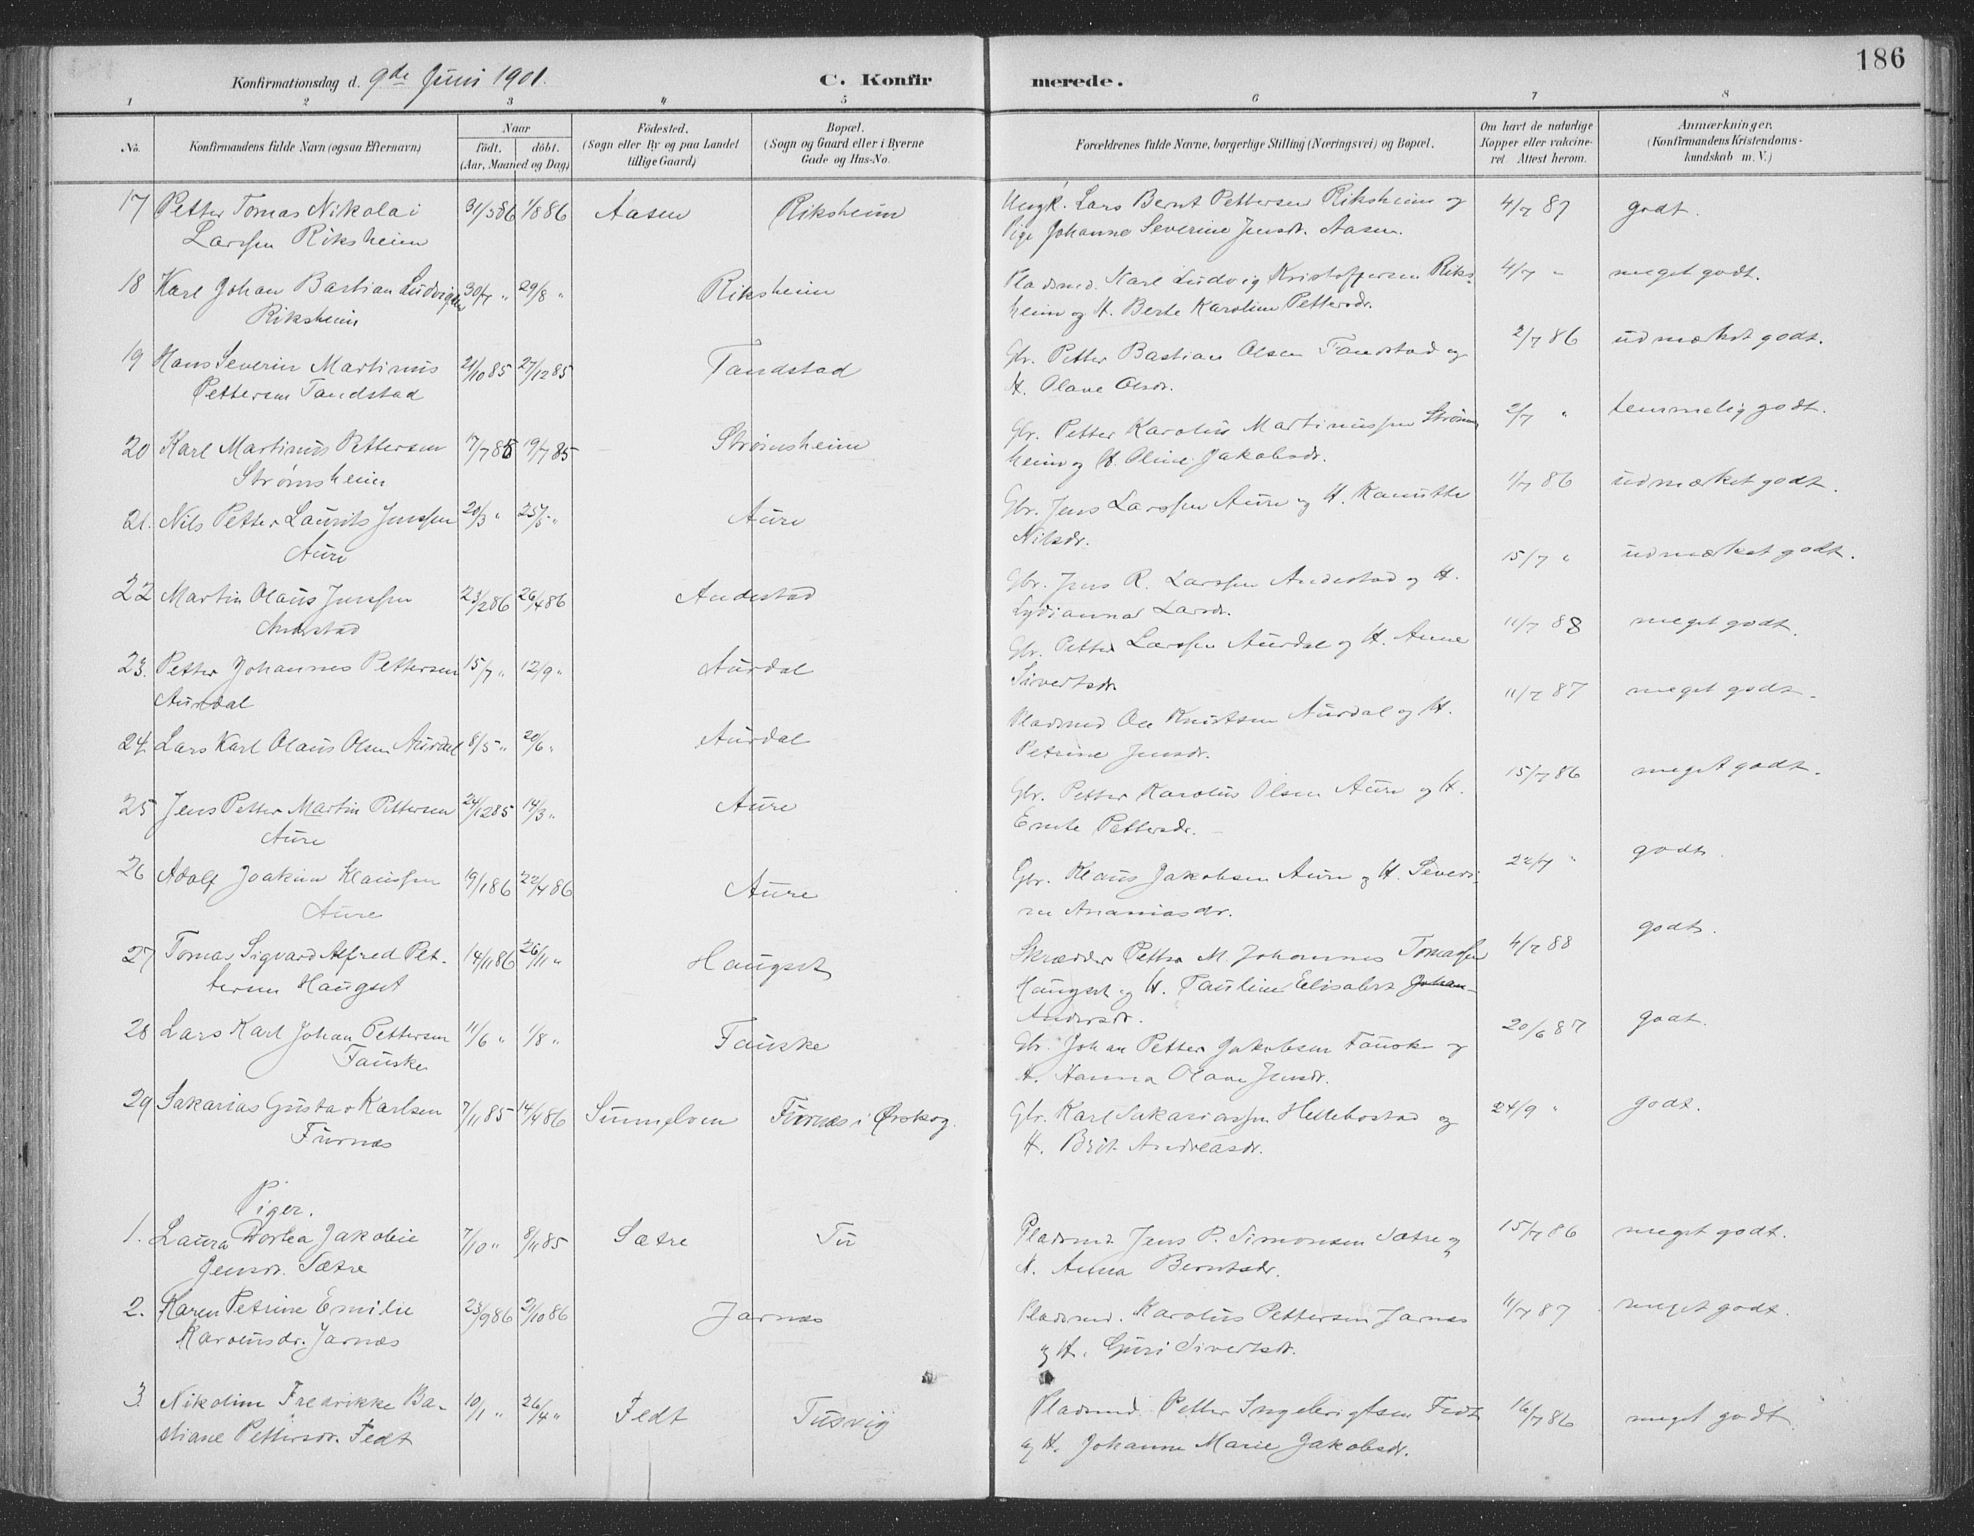 186
Konfirmationsdag d. 9de Juni 1901.
C. Konfirmerede.
1 2 3 4 5 6 7 8
No. Konfirmandens fulde Navn (ogsaa Efternavn) Naar födt. döbt. (Aar, Maaned og Dag) Födested. (Sogn eller By og paa Landet tillige Gaard) Bopæl. (Sogn og Gaard eller i Byerne Gade og Hus-No. Forældrenes fulde Navne, borgerlige Stilling (Næringsvei) og Bopæl. Om havt de naturlige Kopper eller vakcineret. Attest herom. Anmærkninger. (Konfirmandens Kristendomskundskab m. V.)
17 Petter Tomas Nikolai 31/5 86 1/8 86 Aasen Riksheim Ungk. Lars Bernt Pettersen Riksheim og 4/7 87 godt.
Larssen Riksheim Pige Johanne Severine Jensdr. Aasen.
18 Karl Johan Bastian Ludvigsen 30/7 " 29/8 " Riksheim Pladsmd. Karl Ludvig Kristoffersen Riks- 4/7 " meget godt.
Riksheim heim og H. Berte Karoline Pettersdr.
19 Hans Severin Martinus 21/10 85 27/12 85 Tandstad Gbr. Petter Bastian Olsen Tandstad og 2/7 86 udmærket godt.
Pettersen Tandstad H. Olave Olsdr.
20 Karl Martinus Pettersen 17/7 85 19/7 85 Strømsheim Gbr. Petter Karolus Martinussen Strøms 2/7 " temmelig godt.
Strømsheim heim og H. Oline Jakobsdr.
21. Nils Petter Laurits Jenssen 20/3 " 25/5 " Aure Gbr. Jens Larssen Aure og H. Kanutte 1/7 86 udmærket godt.
Aure Nilsdr.
22 Martin Olaus Jenssen 23/2 86 26/4 86 Andestad Gbr. Jens R. Larssen Andestad og H. 15/7 " udmærket godt.
Andestad Lydianna Larsdr.
23. Petter Johannes Pettersen 15/7 " 12/9 " Aurdal Gbr. Petter Larssen Aurdal og H. Anne 11/7 88 meget godt.
Aurdal Sivertsdr.
24. Lars Karl Olaus Olsen Aurdal 8/5 " 20/6 " Aurdal Pladsmd Ole Knutsen Aurdal og H. 11/7 87 meget godt.
Petrine Jensdr.
25 Jens Petter Martin Pettersen 24/12 85 14/3 " Aure Gbr. Petter Karolus Olsen Aure og H. 15/7 86 meget godt.
Aure Pettersdr.
26 Adolf Joakim Klaussen 19/1 86 22/4 86 Aure Gbr. Klaus Jakobsen Aure og H. Severi- 22/7 " godt.
Aure ne Ananiasdr.
27 Tomas Sigvard Alfred Pet- 14/11 86 26/11 " Haugset Skrædder Petter M. Johannes Tomassen 4/7 88 godt.
tersen Haugset Haugset og H. Pauline Elisabet Johan-
Andersdr.
28 Lars Karl Johan Pettersen 11/6 " 1/8 " Fauske Gbr. Johan Petter Jakobsen Fauske og 20/6 87 godt.
Fauske H. Hanna Olave Jensdr.
29 Sakarias Gustav Karlsen 7/11 85 14/4 86 Sunnylven Furnæs i Ørskog. Gbr. Karl Sakariassen Hellebostad og 24/9 " godt.
Furnæs H. Brit Andreasdr.
Piger.
1. Laura Dortea Jakobie 7/10 " 8/11 85 Sætre Tu Pladsmd. Jens P. Simonsen Sætre og 15/7 86 meget godt.
Jensdr. Sætre H. Anna Berntsdr.
2. Karen Petrine Emilie 23/9 86 2/10 86 Jarnæs Pladsmd. Karolus Pettersen Jarnæs 11/7 87 meget godt.
Karolusdr. Jarnæs og H. Guri Sivertsdr.
3. Nikoline Fredrikke Ba- 10/1 " 26/4 " Fedt Tusvig Pladsmd. Petter Ingebrigtsen Fedt 16/7 86 meget godt
stiane Pettersdr. Fedt og H. Johanne Marie Jakobsdr.